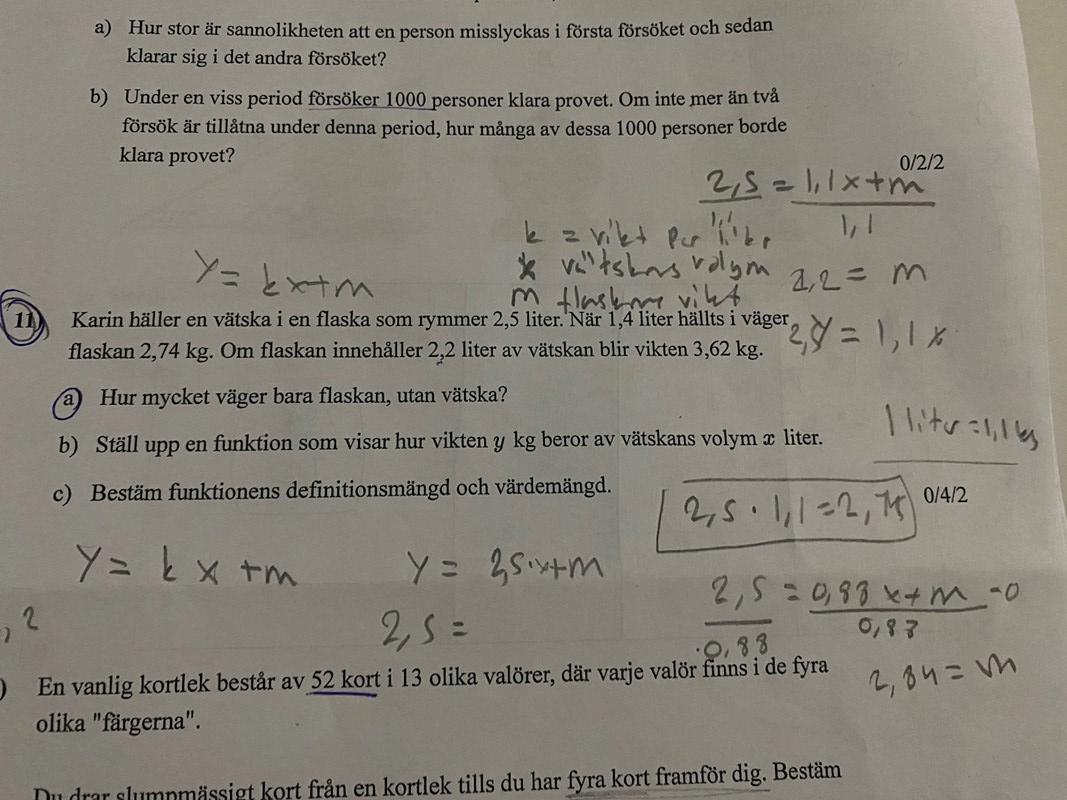 a) Hur stor är sannolikheten att en person misslyckas i första försöket och sedan
klarar sig i det andra försöket?
b) Under en viss period försöker 1000 personer klara provet. Om inte mer än två
försök är tillåtna under denna period, hur många av dessa 1000 personer borde
klara provet?
0/2/2
2,5 = 1,1x+m
1,1 1,1
k = vikt per liter
x vätskans volym
m flaskans vikt
y = kx+m
2,2 = m
11) Karin häller en vätska i en flaska som rymmer 2,5 liter. När 1,4 liter hällts i väger
flaskan 2,74 kg. Om flaskan innehåller 2,2 liter av vätskan blir vikten 3,62 kg.
= 1,1 x
a) Hur mycket väger bara flaskan, utan vätska?
b) Ställ upp en funktion som visar hur vikten y kg beror av vätskans volym x liter.
1 liter = 1,1 kg
c) Bestäm funktionens definitionsmängd och värdemängd.
0/4/2
2,5 · 1,1 = 2,75
y = kx+m
y = 2,5·x+m
2,5 = 0,88x+m -0
0,88 0,88
, 2
2,5 =
2,84 = m
) En vanlig kortlek består av 52 kort i 13 olika valörer, där varje valör finns i de fyra
olika "färgerna".
Du drar slumpmässigt kort från en kortlek tills du har fyra kort framför dig. Bestäm